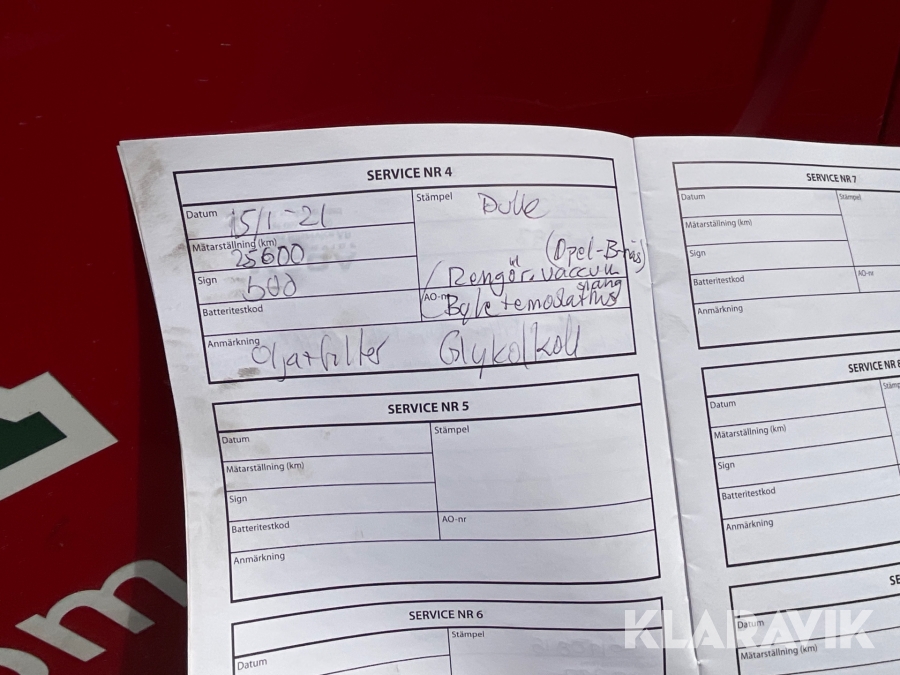 SERVICE NR 4
Datum 15/1-21
Stämpel Dulle
Mätarställning (km) 25600
(Opel-B-näs)
Sign 500
Rengör. vaccum
slang
Batteritestkod
AO-nr Byte temodathus
Anmärkning Olja+filter Glykolkoll
SERVICE NR 5
Datum
Stämpel
Mätarställning (km)
Sign
Batteritestkod
AO-nr
Anmärkning
SERVICE NR 6
Datum
Stämpel
SERVICE NR 7
Datum
Stämpel
Mätarställning (km)
Sign
Batteritestkod
AO-nr
Anmärkning
SERVICE NR 8
Datum
Stämp
Mätarställning (km)
Sign
Batteritestkod
Anmärkning
SE
Datum
Mätarställning (km)
om
KLARAVIK